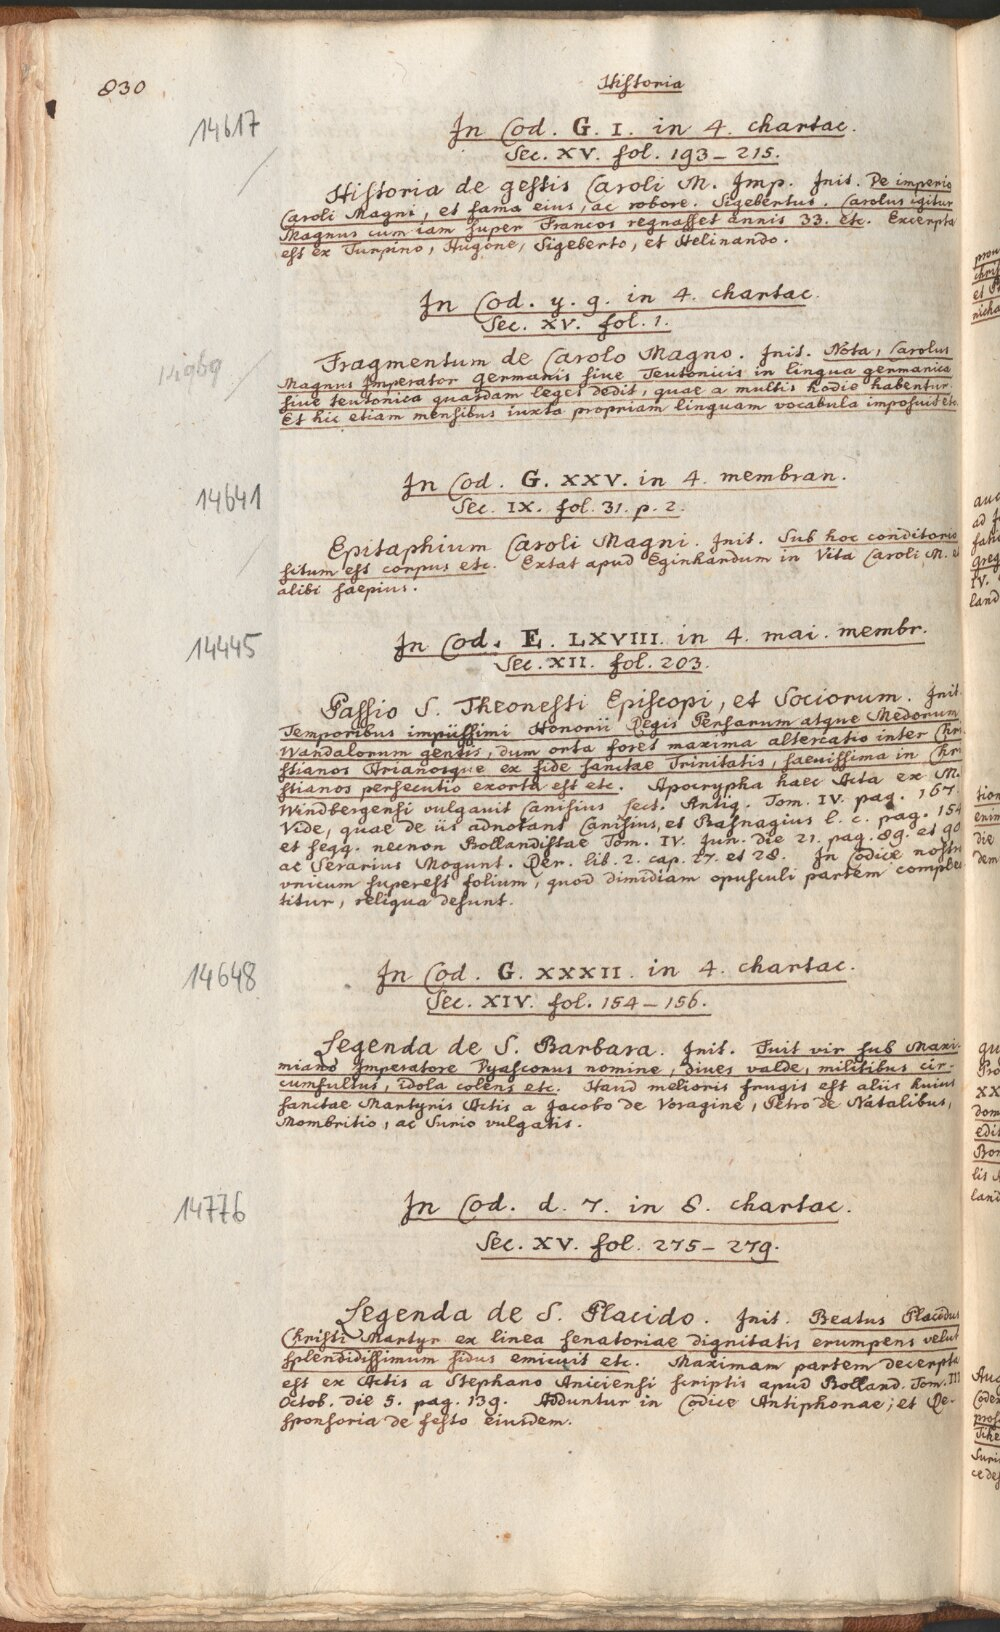 830
Historia
14617
In Cod. G. I. in 4. chartac.
Sec. XV. fol. 193–215.
Historia de gestis Caroli M. Imp. Init. De imperio
Caroli Magni, et fama eius, ac robore. Sigebertus. Carolus igitur
Magnus cum iam super Francos regnasset annis 33. etc. Excerpta
est ex Turpino, Hugone, Sigeberto, et Helinando.
In Cod. y. g. in 4. chartac.
Sec. XV. fol. 1.
14969
Fragmentum de Carolo Magno. Init. Nota, Carolus
Magnus Imperator germanis siue Teutonicis in lingua germanica
siue teutonica quasdam leges dedit, quae a multis hodie habentur.
Et hic etiam mensibus iuxta propriam linguam vocabula imposuit etc.
14641
In Cod. G. XXV. in 4. membran.
Sec. IX. fol. 31. p. 2.
Epitaphium Caroli Magni. Init. Sub hoc conditorio
situm est corpus etc. Extat apud Eginhardum in Vita Caroli M. et
alibi saepius.
14445
In Cod. E. LXVIII. in 4. mai. membr.
Sec. XII. fol. 203.
Passio S. Theonesti Episcopi, et Sociorum. Init.
Temporibus impiissimi Honorii Regis Persarum atque Medorum
Wandalorum gentis, dum orta foret maxima altercatio inter Chri
stianos Arianosque ex fide sanctae Trinitatis, saeuissima in Chri
stianos persecutio exorta est etc. Apocrypha haec Acta ex M.
Windbergensi vulgauit Canisius lect. Antiq. Tom. IV. pag. 157.
Vide, quae de iis adnotant Canisius, et Basnagius l. c. pag. 154
et seqq. necnon Bollandistae Tom. IV. Jun. die 21. pag. 89. et 90
ac Serarius Mogunt. Rer. lib. 2. cap. 27. et 28. In Codice nostro
vnicum superest folium, quod dimidiam opusculi partem comple
titur, reliqua desunt.
14648
In Cod. G. XXXII. in 4. chartac.
Sec. XIV. fol. 154–156.
Legenda de S. Barbara. Init. Fuit vir sub Maxi-
miano Imperatore Dyascorus nomine, diues valde, militibus cir-
cumfultus, idola colens etc. Haud melioris frugis est aliis huius
sanctae Martyris Actis a Jacobo de Voragine, Petro de Natalibus,
Mombritio, ac Surio vulgatis.
14776
In Cod. d. 7. in 8. chartac.
Sec. XV. fol. 275–279.
Legenda de S. Placido. Init. Beatus Placidus
Christi Martyr ex linea senatoriae dignitatis erumpens velut
splendidissimum sidus emicuit etc. Maximam partem decerpta
est ex Actis a Stephano Aniciensi scriptis apud Bolland. Tom. III
Octob. die 5. pag. 139. Adduntur in Codice Antiphonae, et Re-
sponsoria de festo eiusdem.